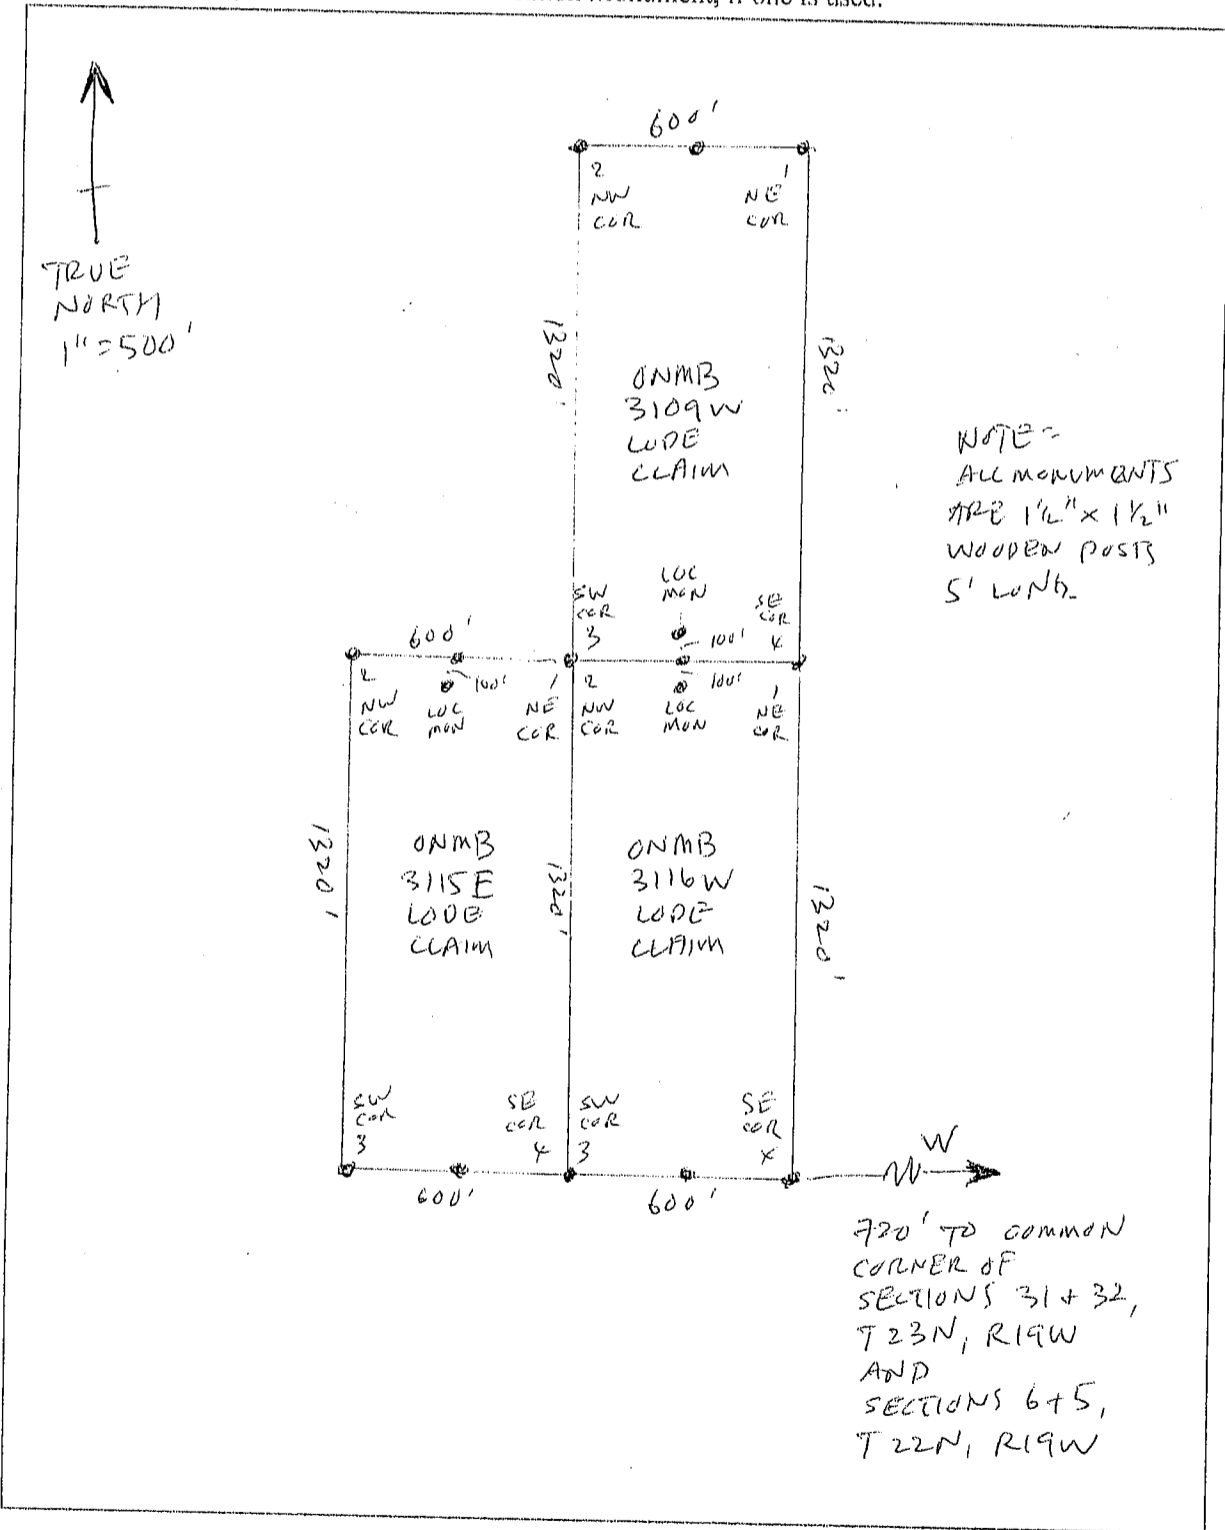 Monument, if one is used.
TRUE
NORTH
1"=500'
600'
2
NW
COR
1
NE
COR
1320'
1320'
ONMB
3109W
LODE
CLAIM
NOTE=
ALL MONUMENTS
ARE 1½" x 1½"
WOODEN POSTS
5' LONG.
SW
COR
3
LOC
MON
100'
SE
COR
4
600'
2
NW
COR
100'
LOC
MON
1
NE
COR
2
NW
COR
100'
LOC
MON
1
NE
COR
1320'
ONMB
3115E
LODE
CLAIM
1320'
ONMB
3116W
LODE
CLAIM
1320'
SW
COR
3
SE
COR
4
SW
COR
3
SE
COR
4
600'
600'
W
720' TO COMMON
CORNER OF
SECTIONS 31 + 32,
T 23N, R19W
AND
SECTIONS 6 + 5,
T 22N, R19W